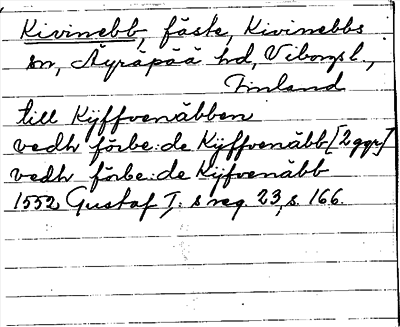 Kivinebb, fäste, Kivinebbs
sn, Äyräpää hd, Viborgs l.,
Finland
till Kÿffvenäbben
vedh förbe:de Kÿffvenäbb [2 ggr]
vedh förbe:de Kÿfvenäbb
1552 Gustaf I:s reg 23, s. 166.